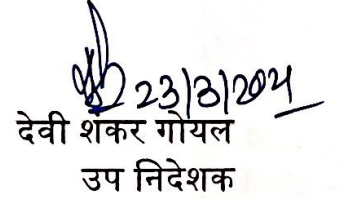 23/3/2021
देवी शंकर गोयल
उप निदेशक